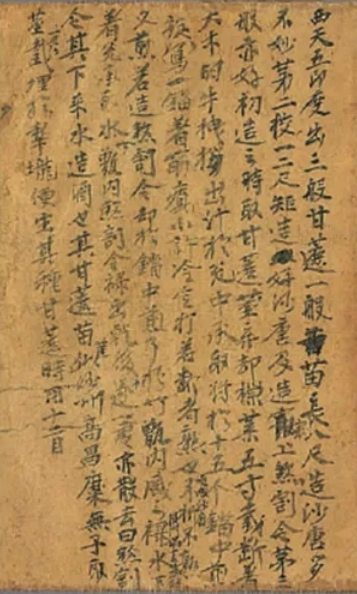 西天五印度出三般甘蔗一般苗長八尺造沙唐多
不妙第二挍一二尺矩造好沙唐及造最上煞割令第三
般亦好初造之時取甘蔗莖弃却椋葉五寸截斷著
大木臼牛拽拶出汁於瓮中承取將於十五个鐺中煎
旋寫一鐺著筯小許冷定打若斷者熟也不折不熟
又煎若造煞割令却於鐺中煎了於竹甑內盛之祿水下
著瓮承取水竹甑內煞割令祿出乾後遂一處亦散去曰煞割
令其下來水造酒也其甘蔗苗莖似沙州高昌糜無子取
莖一尺截埋於犁壠便生其種甘蔗時用十二月